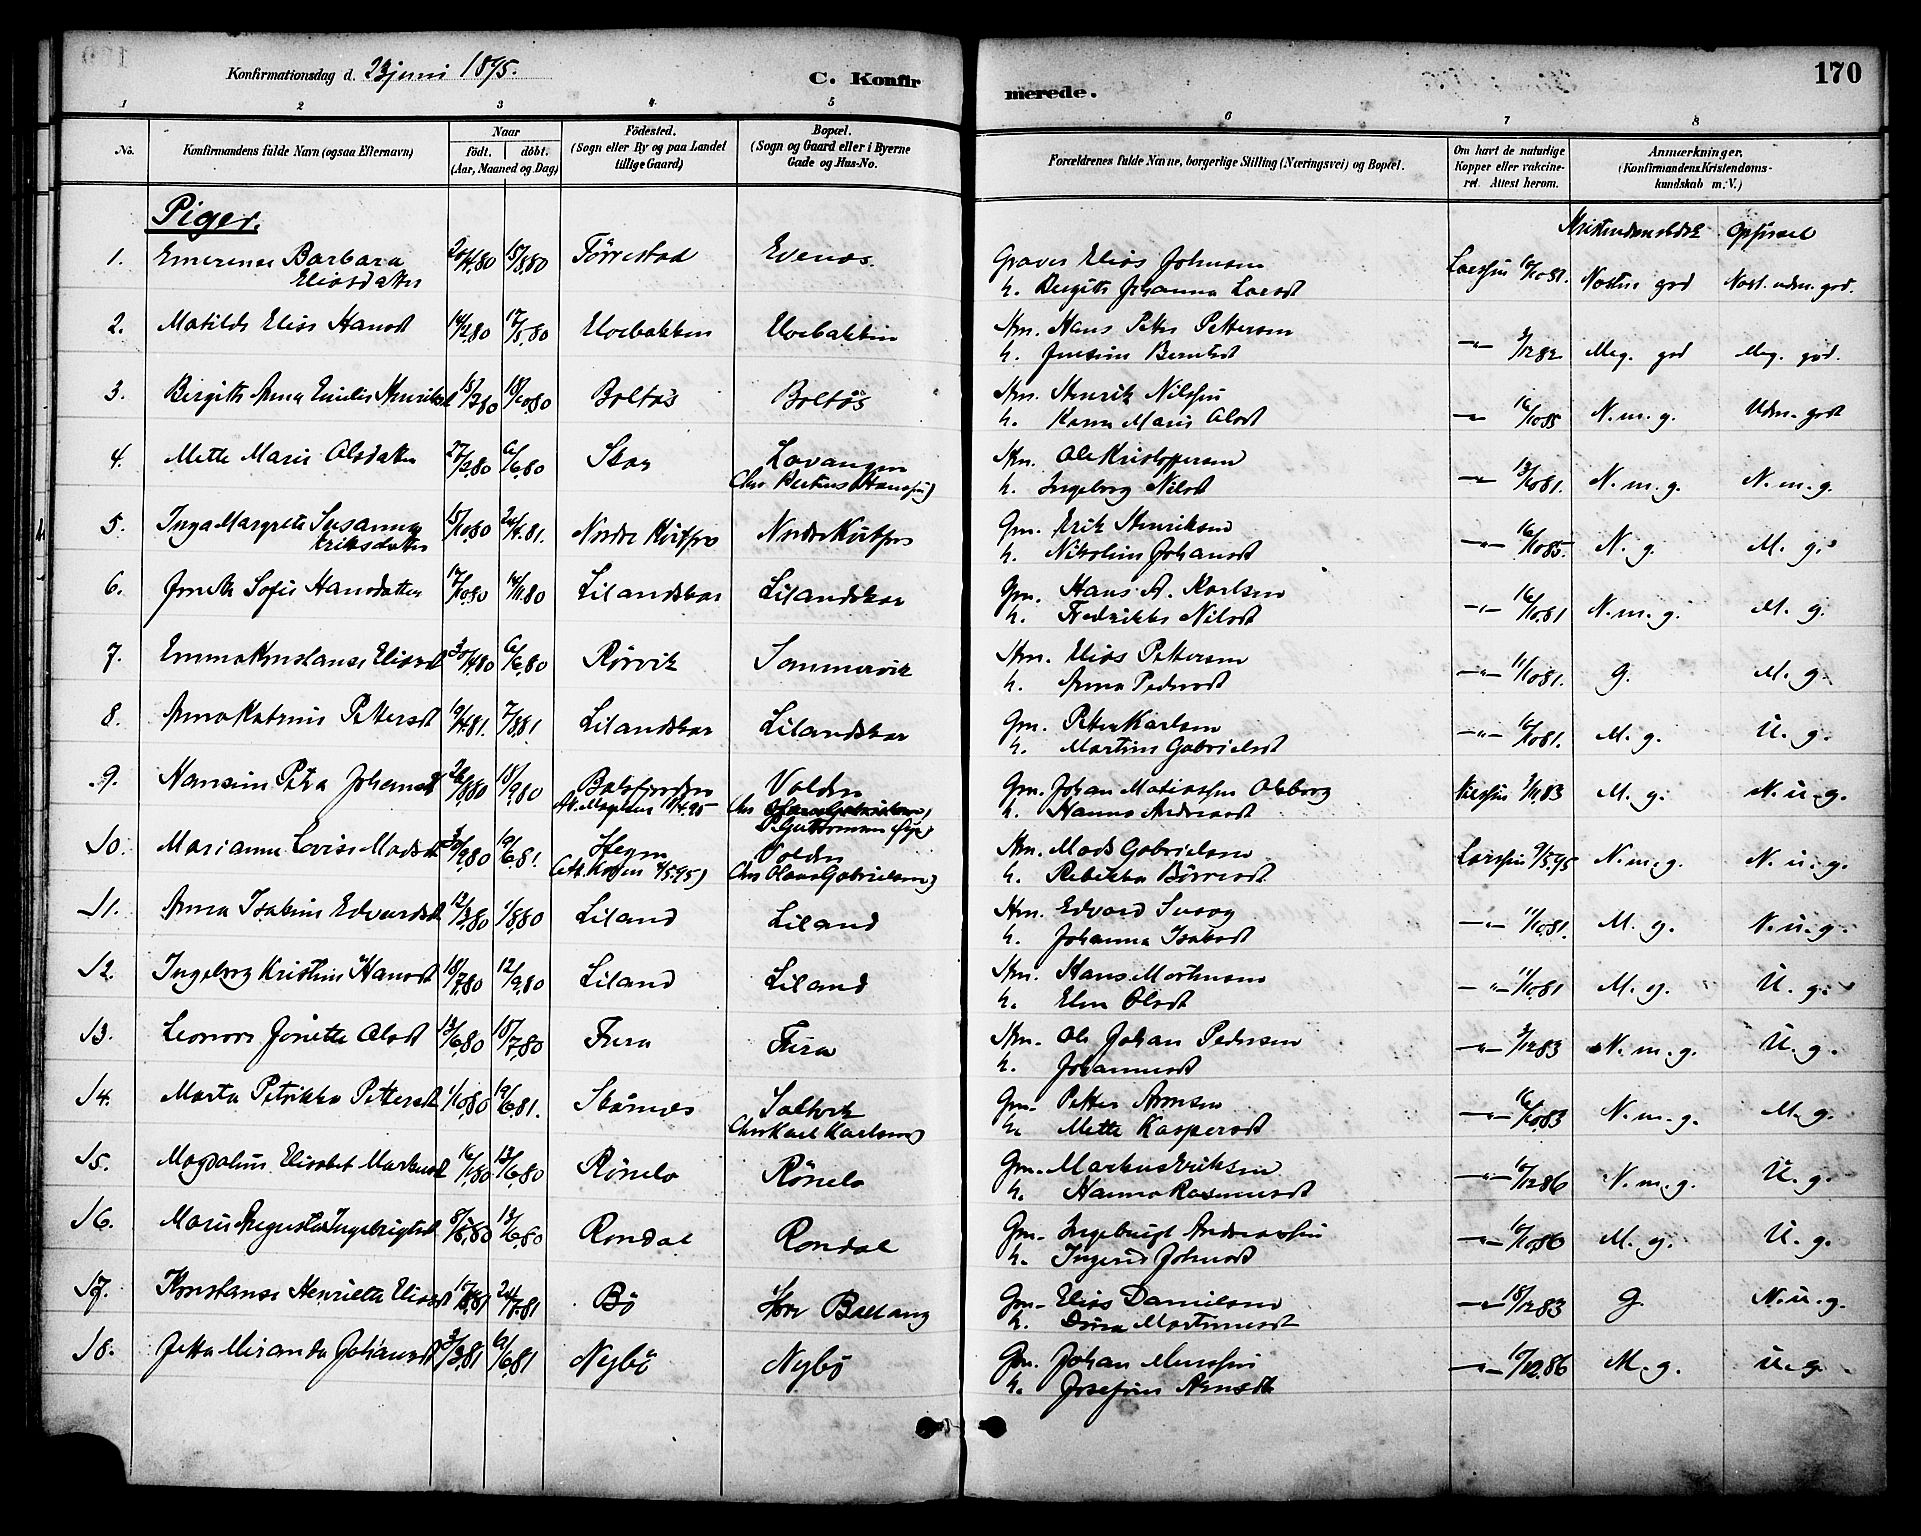 Konfirmationsdag d. 23 juni 1895.
C. Konfir
merede.
170
1 2 3 4 5 6 7 8
No.
Konfirmandens fulde Navn (ogsaa Efternavn)
Naar
födt. döbt.
(Aar, Maaned og Dag)
Födested.
(Sogn eller By og paa Landet
tillige Gaard)
Bopæl.
(Sogn og Gaard eller i Byerne
Gade og Hus-No.
Forældrenes fulde Navne, borgerlige Stilling (Næringsvei) og Bopæl.
Om havt de naturlige
Kopper eller vakcine-
ret. Attest herom.
Anmærkninger.
(Konfirmandens Kristendoms-
kundskab m. V.)
Piger.
Opförsel
1. Emerense Barbara 20/4.80 15/8.80 Tørrestad Evenes. Graver Elias Johnsen
Eliasdatter h. Birgitte Johanna Larsdt
2. Matilde Elise Hansdt 14/2.80 17/5.80 Uvebakken Uvebakken Stm. Hans Peter Pettersen
h. Jensine Berntsdt 3/12 82 Meg. god Meg. god.
3. Birgitte Anna Emilie Henriksdt 15/3 80 18/10 80 Boltås Boltås Stm. Henrik Nilssen
h. Karen Marie Olsdt 16/10 85 N. m. g. Udm. godt
4. Mette Marie Olsdatter 27/2.80 6/6.80 Skar Lavangen Stm. Ole Kristoffersen
(hos Petrus Hansen) h. Ingeborg Nilsdt 13/10 81. N. m. g. N. m. g.
5. Inga Margrete Susanna 15/10.80 24/4.81. Nordre Kvitfors Nordre Kvitfors Gm. Erik Henriksen
Eriksdatter h. Nikoline Johansdt 16/10 85. N. g. M. g.
6. Jonette Sofie Hansdatter 17/10.80 14/11.80 Lilandskar Lilandskar Gm. Hans A. Karlsen
h. Fredrikke Nilsdt 16/10.81 N. m. g. M. g.
7. Emma Konstanse Eliasdt 30/4.80 6/6.80 Rørvik Sommervik Stm. Elias Pettersen
h. Anna Pedersdt 11/10 81. g. M. g.
8. Anna Katrine Pettersdt 19/4.81. 7/8.81 Lilandskar Lilandskar Gm. Petter Karlsen
h. Martine Gabrielsdt 16/10 81. M. g. U. g.
9. Hansine Petra Johansdt 26/8.80 18/9.80 Balsfjorden Volden Gm. Johan Mathiassen Olsborg
h. Hanna Andreasdt Nilssen 3/11.83 M. g. N. u. g.
10. Marianna Lovise Madsdt 30/9.80 19/6.81. Stegen Volden Stm. Mads Gabrielsen Larssen 9/5.95 N. m. g. N. u. g.
(hos Olaus Gabrielsen) h. Rebekka Børresdt
11. Anna Isakine Edvardsdt 12/3.80 1/8.80 Liland Liland Stm. Edvard
h. Johanna Isaksdt 11/10.81. M. g. N. u. g.
12. Ingeborg Kristine Hansdt 18/7.80 12/9.80 Liland Liland Stm. Hans Mortensen
h. Elen Olsdt 11/10.81 M. g. U. g.
13. Leonore Jonette Olsdt 13/6.80 18/7.80 Fura Fura Stm. Ole Johan Pedersen
h. Johannesdt 3/12 83 N. m. g. U. g.
14. Marta Petrikke Pettersdt 1/10.80 19/6.81. Skarnes Saltvik Gm. Petter Arnesen
(hos Karl Karlsen) h. Mette Kaspersdt 16/10.83 N. m. g. M. g.
15. Magdalene Elisabet Markusdt 16/1.80 13/6.80 Rönelo Rönelo Gm. Markus Eriksen
h. Hanna Rasmusdt 10/12 86 N. m. g. U. g.
16. Marie Augusta Ingebrigtsdt 8/5.80 13/6.80 Rondal Rondal Gm. Ingebrigt Andreassen
h. Ingerid Johnsdt 10/10.86 M. g. U. g.
17. Konstanse Henriette Eliasdt 24/7.81 Bö Ballang Gm. Elias Danielsen
h. Martinusdt 18/12 83 G N. u. g.
18. Jetta Miranda Johansdt 3/3.81 6/6.81 Nybö Nybö Gm. Johan
h. Josefine Arnesdt 10/12.86 M. g. U. g.